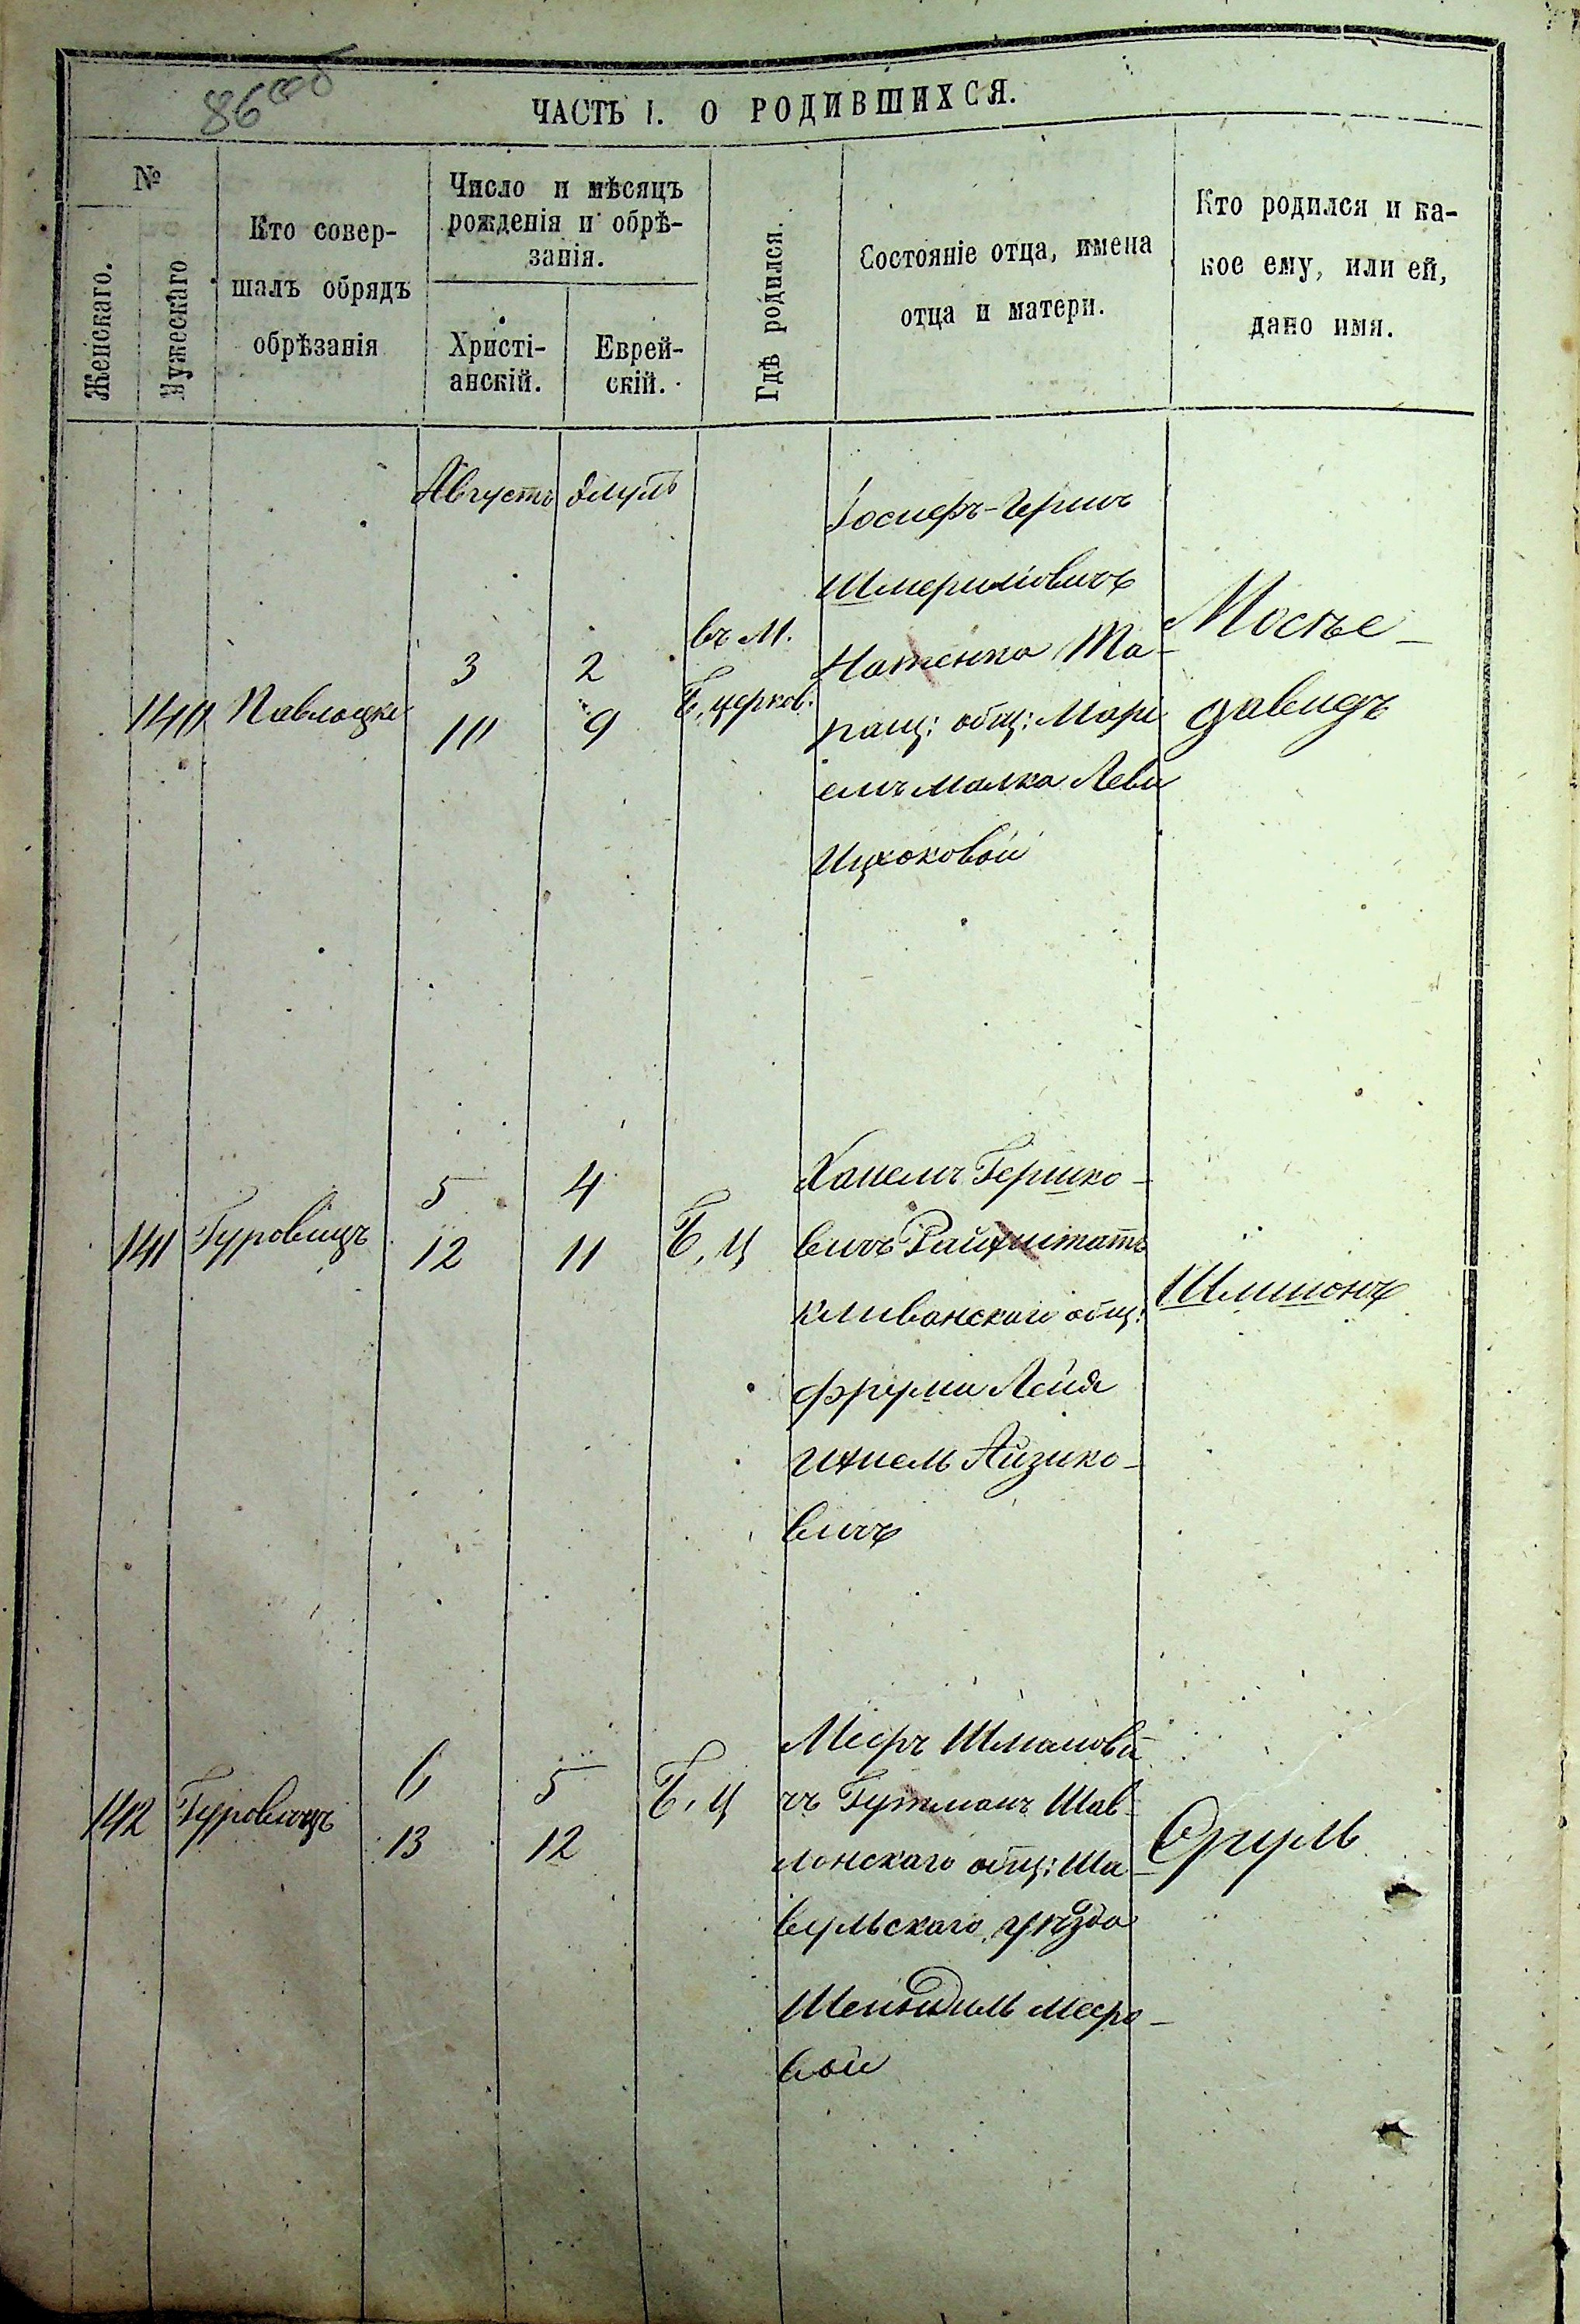 86 об
ЧАСТЬ I. О РОДИВШИХСЯ.
№
Женскаго.
Мужескаго
Кто совер-
шалъ обрядъ
обрѣзанія
Число и мѣсяцъ
рожденія и обрѣ-
занія.
Христі-
анскій.
Еврей-
скій.
Гдѣ родился.
Состояніе отца, имена
отца и матери.
Кто родился и ка-
кое ему, или ей,
дано имя.
Августъ
Элулъ
140
Паволоцкі
3
10
2
9
въ М.
Б, церков:
Іосифъ-Гершъ
Шмеріловичъ
Натенко Та-
ращ: общ: Марі
емъ Малка Леви
Ицхоковой
Мосъе-
Давидъ
141
Гуровицъ
5
12
4
11
Б, ц
Хаимъ Гершко-
вичъ Райхштатъ
Клеванскаго общ:
Фрума Лейя
Ихиель Айзико-
вичъ
Шлиіонъ
142
Гуровицъ
6
13
5
12
Б, ц
Меєръ Шмаіови-
чъ Гутманъ Шав-
лонскаго общ: Ша-
вульскаго уѣзда
Шейндиль Меєро-
вой
Сруль